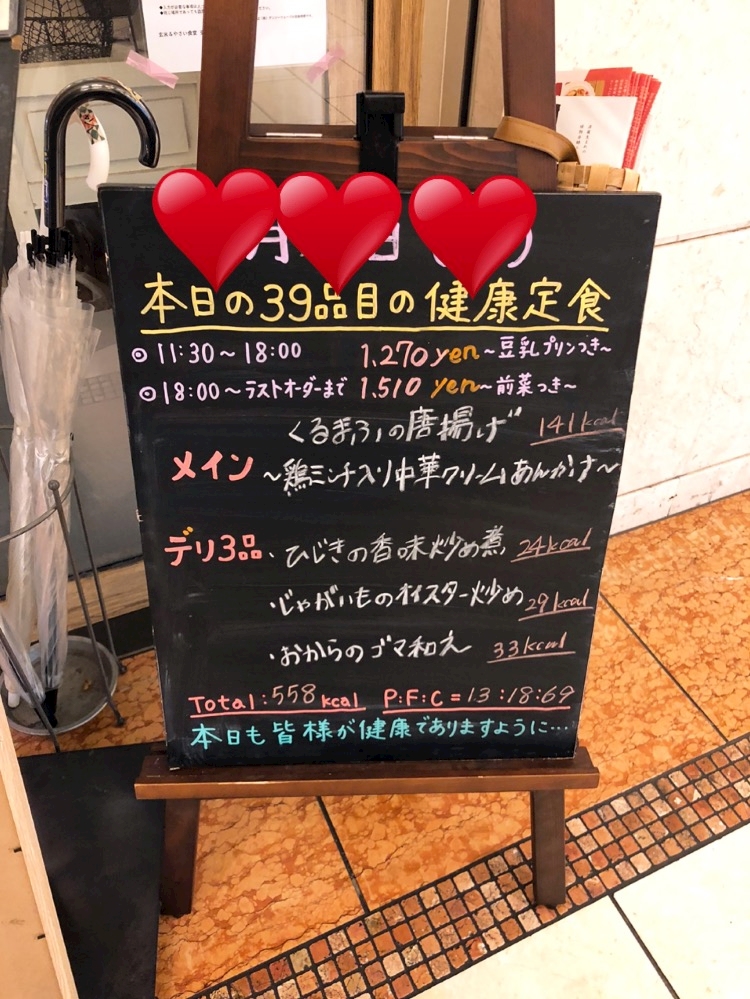 玄米&やさい食堂
月 日 ( )
本日の39品目の健康定食
◎11:30〜18:00 1,270yen〜豆乳プリンつき〜
◎18:00〜ラストオーダーまで 1,510yen〜前菜つき〜
くるまふの唐揚げ 141kcal
メイン 〜鶏ミンチ入り中華クリームあんかけ〜
デリ3品・ひじきの香味炒め煮 24kcal
・じゃがいものオイスター炒め 29kcal
・おからのゴマ和え 33kcal
Total:558kcal P:F:C=13:18:69
本日も皆様が健康でありますように…